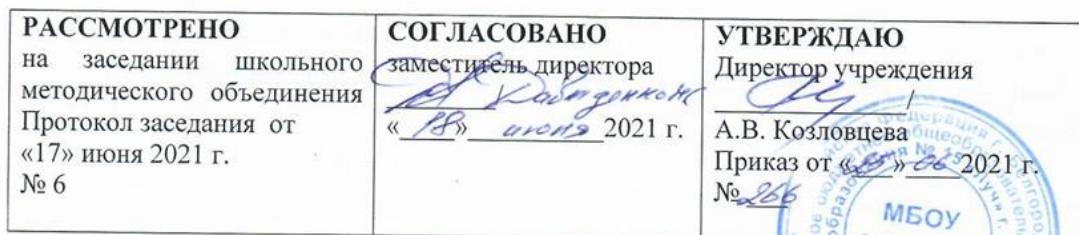 РАССМОТРЕНО
на заседании школьного
методического объединения
Протокол заседания от
«17» июня 2021 г.
№ 6
СОГЛАСОВАНО
заместитель директора
«18» июня 2021 г.
УТВЕРЖДАЮ
Директор учреждения
/
А.В. Козловцева
Приказ от «25» 06 2021 г.
№ 266
МБОУ